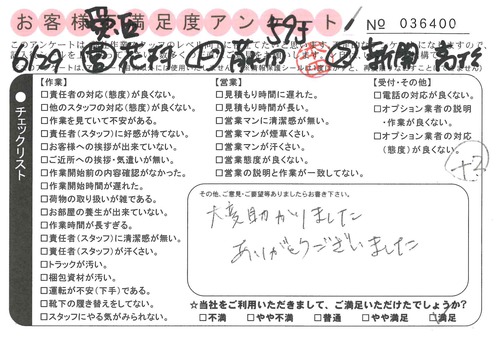 お客様満足度アンケート
№ 036400
6/29
チェックリスト
【作業】
□責任者の対応(態度)が良くない。
□他のスタッフの対応(態度)が良くない。
□作業を見ていて不安がある。
□責任者(スタッフ)に好感が持てない。
□お客様への挨拶が出来ていない。
□ご近所への挨拶・気遣いが無い。
□作業開始前の内容確認がなかった。
□作業開始時間が遅れた。
□荷物の取り扱いが雑である。
□お部屋の養生が出来ていない。
□作業時間が長すぎる。
□責任者(スタッフ)に清潔感が無い。
□責任者(スタッフ)が汗くさい。
□トラックが汚い。
□梱包資材が汚い。
□運転が不安(下手)である。
□靴下の履き替えをしてない。
□スタッフにやる気がみられない。
【営業】
□見積もり時間に遅れた。
□見積もり時間が長い。
□営業マンに清潔感が無い。
□営業マンが煙草くさい。
□営業マンが汗くさい。
□営業態度が良くない。
□営業の説明と作業が一致してない。
【受付・その他】
□電話の対応が良くない。
□オプション業者の説明
・作業が良くない。
□オプション業者の対応
(態度)が良くない。
その他、ご意見・ご要望等ありましたらお書き下さい。
大変助かりました
ありがとうございました
☆当社をご利用いただきまして、ご満足いただけてしょうか?
□不満 □やや不満 □普通 □やや満足 □満足